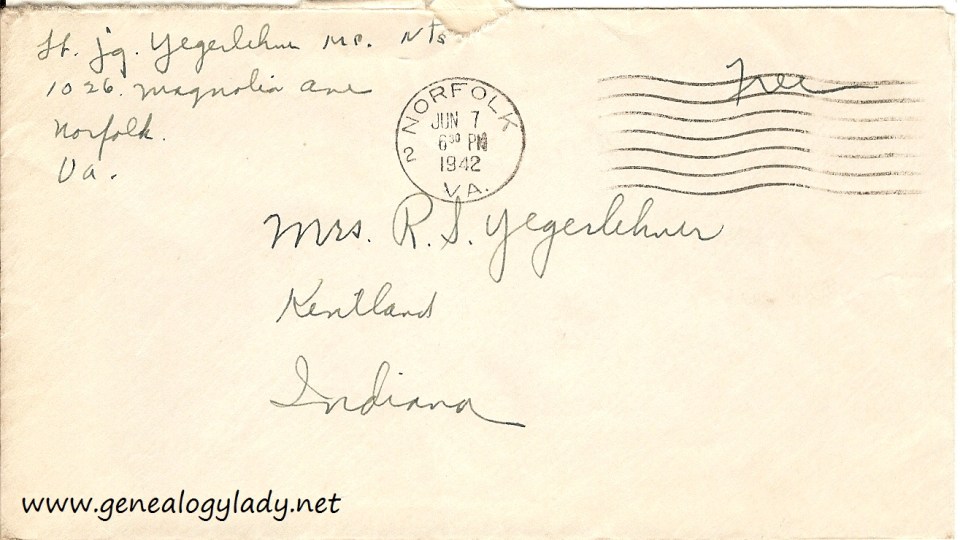 Lt. jg. Yegerlehner MC. Nts
1026. Magnolia Ave
Norfolk.
Va.
NORFOLK
JUN 7
6 30 PM
1942
2
VA.
Free
Mrs. R. S. Yegerlehner
Kentland
Indiana
www.genealogylady.net